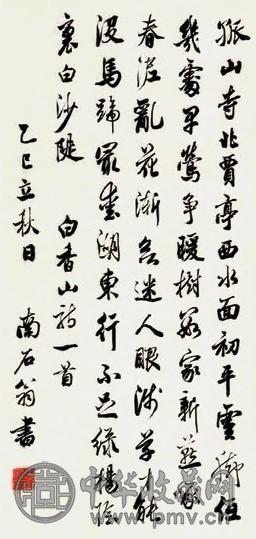 孤山寺北賈亭西水面初平雲腳低
幾處早鶯爭暖樹誰家新燕啄
春泥亂花漸欲迷人眼淺草才能
沒馬蹄最愛湖東行不足綠楊陰
裏白沙隄 白香山詩一首
乙巳立秋日 南石翁書
中华收藏网
www.pmv.cn